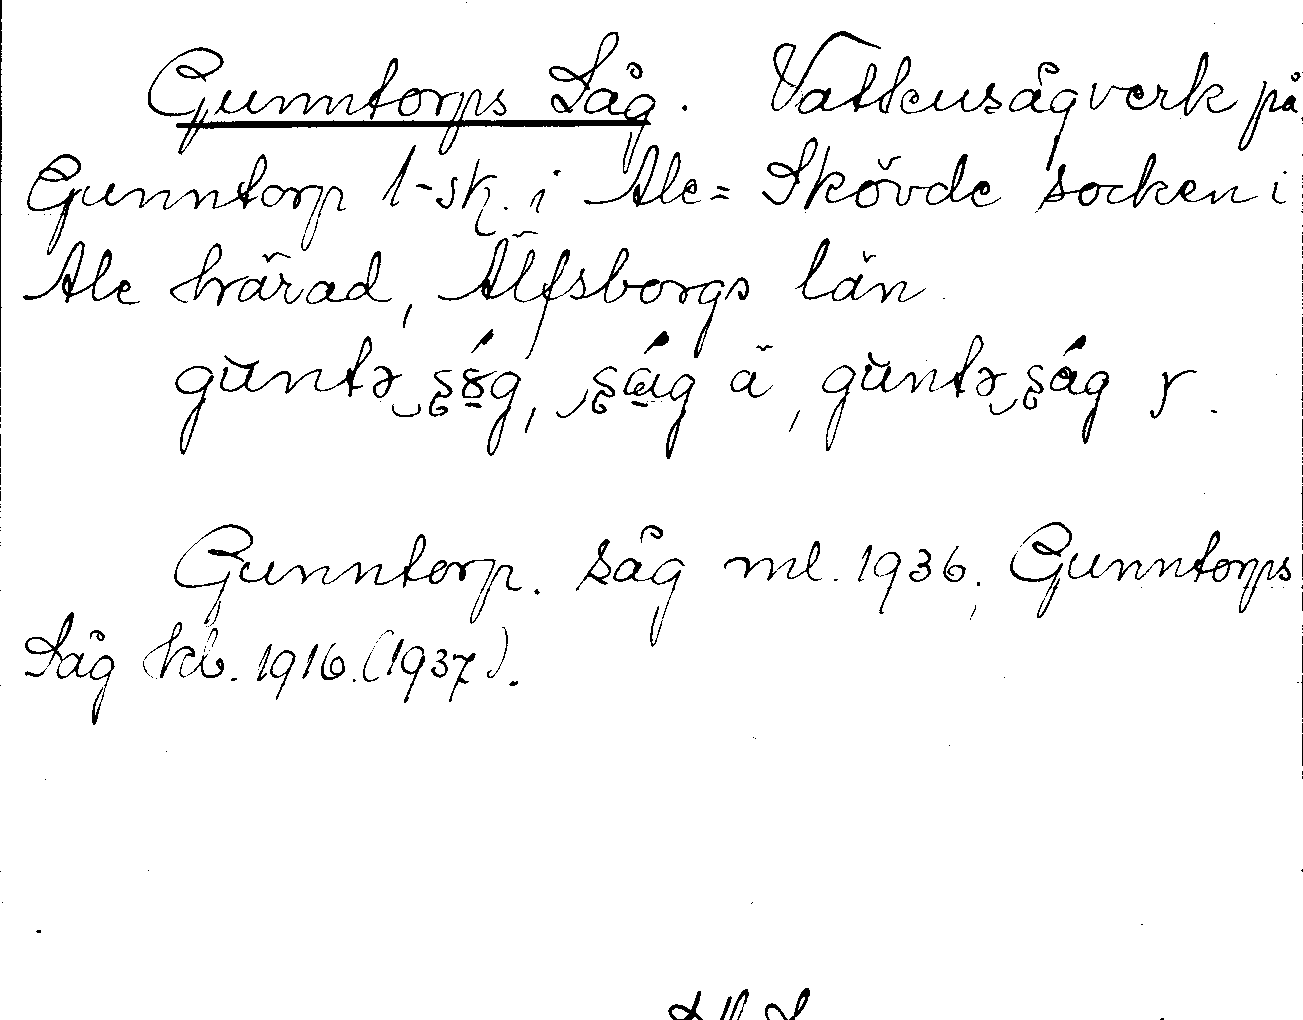 Gunntorps Såg. Vattensågverk på
Gunntorp 1-sk. i Ale-Skövde socken i
Ale härad, Älfsborgs län
Gunntorp. såg ml. 1936, Gunntorps
Såg kb. 1916.(1937).